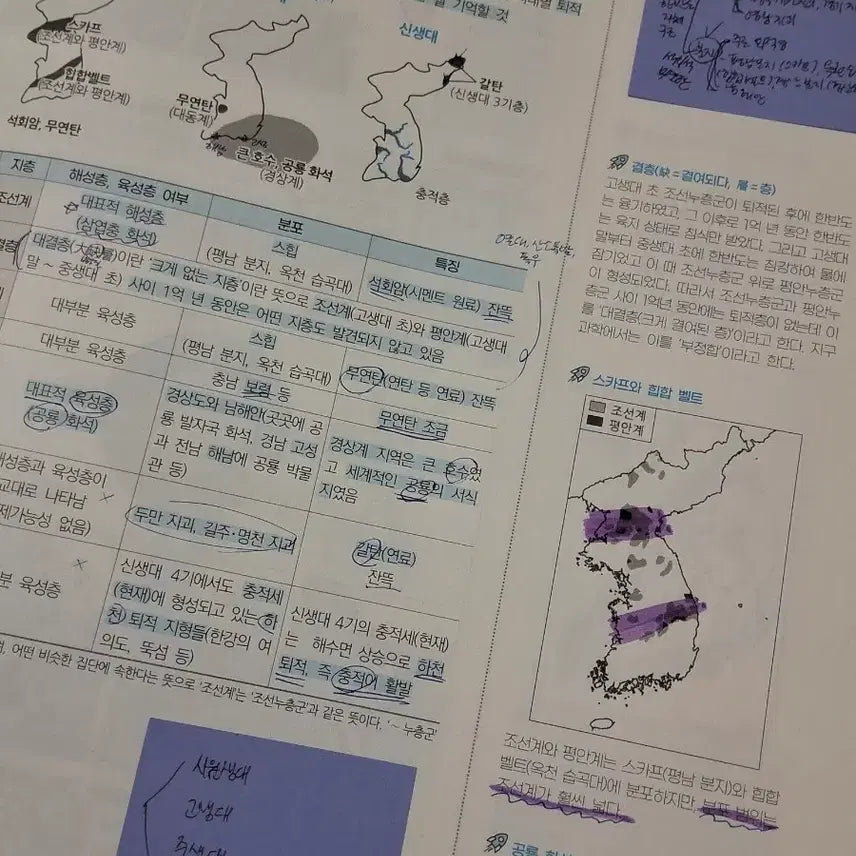 별 기억할 것
스카프
(조선계와 평안계)
힙합벨트
(조선계와 평안계)
석회암, 무연탄
무연탄
(대동계)
큰 호수, 공룡 화석
(경상계)
신생대
갈탄
(신생대 3기층)
충적층
지층
해성층, 육성층 여부
분포
특징
조선계
대표적 해성층
(삼엽충 화석)
스힙
(평남 분지, 옥천 습곡대)
석회암(시멘트 원료) 잔뜩
대결층(大缺層)이란 '크게 없는 지층'이란 뜻으로 조선계(고생대 초)와 평안계(고생대
말 ~ 중생대 초) 사이 1억 년 동안은 어떤 지층도 발견되지 않고 있음
대부분 육성층
스힙
(평남 분지, 옥천 습곡대)
무연탄(연탄 등 연료) 잔뜩
대부분 육성층
충남 보령 등
무연탄 조금
대표적 육성층
(공룡 화석)
경상도와 남해안(곳곳에 공
룡 발자국 화석, 경남 고성
과 전남 해남에 공룡 박물
관 등)
경상계 지역은 큰 호수였
고 세계적인 공룡의 서식
지였음
해성층과 육성층이
교대로 나타남
제가능성 없음)
두만 지괴, 길주·명천 지괴
갈탄(연료)
잔뜩
부분 육성층
신생대 4기에서도 충적세
(현재)에 형성되고 있는 하
천 퇴적 지형들(한강의 여
의도, 뚝섬 등)
신생대 4기의 충적세(현재)
는 해수면 상승으로 하천
퇴적, 즉 충적이 활발
, 어떤 비슷한 집단에 속한다는 뜻으로 '조선계'는 '조선누층군'과 같은 뜻이다. '~ 누층군'
시원생대
고생대
중생대
결층(缺=결여되다, 層=층)
고생대 초 조선누층군이 퇴적된 후에 한반도
는 융기하였고, 그 이후로 1억 년 동안 한반도
는 육지 상태로 침식만 받았다. 그리고 고생대
말부터 중생대 초에 한반도는 침강하여 물에
잠기었고 이 때 조선누층군 위로 평안누층군
이 형성되었다. 따라서 조선누층군과 평안누
층군 사이 1억년 동안에는 퇴적층이 없는데 이
를 '대결층(크게 결여된 층)'이라고 한다. 지구
과학에서는 이를 '부정합'이라고 한다.
스카프와 힙합 벨트
조선계
평안계
조선계와 평안계는 스카프(평남 분지)와 힙합
벨트(옥천 습곡대)에 분포하지만, 분포 범위는
조선계가 훨씬 넓다.